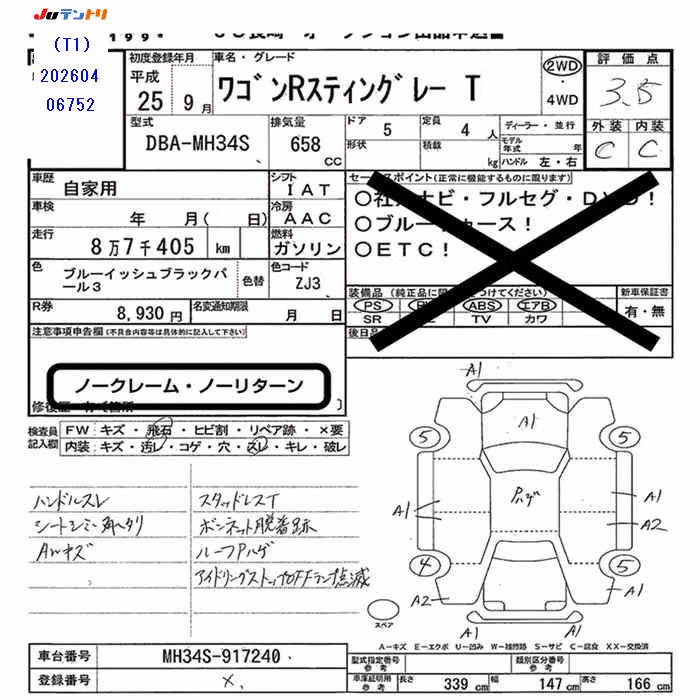 Juテントリ
(T1)
202604
06752
初度登録年月
平成
25 9月
車名・グレード
ワゴンRスティングレー T
2WD
4WD
評価点
3.5
外装 内装
C C
型式
DBA-MH34S
排気量
658
CC
ドア
5
形状
定員
4 人
積載
kg
ディーラー・並行
モデル年式 年
ハンドル 左・右
車歴
自家用
シフト
IAT
車検
年 月( 日)
冷房
AAC
走行
8万7千405 km
燃料
ガソリン
色
ブルーイッシュブラックパール3
色替
色コード
ZJ3
R券
8,930円
名変通知期限
月 日
セールスポイント(正常に機能するものに限ります)
ナビ・フルセグ・D
〇ブルー
〇ETC!
装備品
PS
ABS
エアB
SR
TV
カワ
後日品
新車保証書
有・無
注意事項申告欄(不具合内容等は具体的に記入して下さい)
ノークレーム・ノーリターン
検査員記入欄
FW キズ・飛石・ヒビ割・リペア跡・×要
内装 キズ・汚レ・コゲ・穴・スレ・キレ・破レ
ハンドルスレ
スタッドレスT
ボンネット脱着跡
AWキズ
ルーフハゲ
アイドリングストップOFFランプ点滅
A1
A1
5 5
ハゲ
A1 A1
A2
4 5
A2 A1
A1
スペア
A-キズ E-エクボ U-凹み W-補修跡 S-サビ C-腐食 XX-交換済
車台番号
MH34S-917240
登録番号
×
型式指定番号
参考
類別区分番号
参考
車庫証明用
参考
長さ
339cm
幅
147cm
高さ
166cm